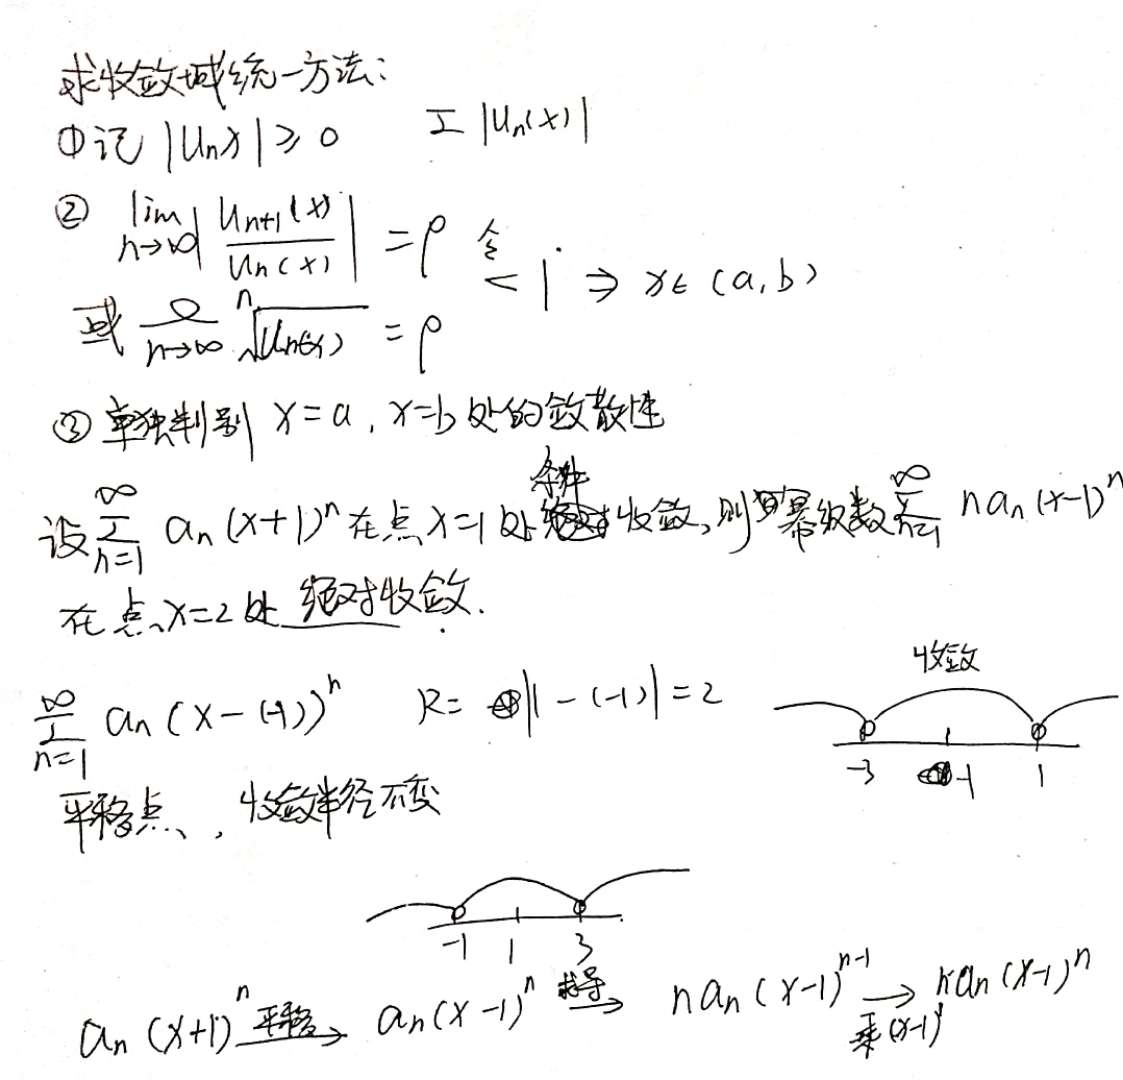 求收敛域统一方法:
① 记 |Uₙx| ≥ 0    Σ |Uₙ(x)|
② lim n→∞ |Uₙ₊₁(x) / Uₙ(x)| = ρ 令 < 1 ⇒ x∈(a,b)
或 n→∞ ⁿ√Uₙ(x) = ρ
③ 单独判别 x=a, x=b 处的敛散性
条件
设 ∞ Σ n=1 aₙ(x+1)ⁿ 在点x=1处 收敛,则 幂级数 ∞ Σ n=1 naₙ(x-1)ⁿ
在点x=2处 绝对收敛.
∞ Σ n=1 aₙ(x-(-1))ⁿ    R= |1-(-1)|=2
收敛
-3 -1 1
平移点, 收敛半径不变
-1 1 3
aₙ(x+1)ⁿ 平移→ aₙ(x-1)ⁿ 求导→ naₙ(x-1)ⁿ⁻¹ → 乘(x-1) naₙ(x-1)ⁿ